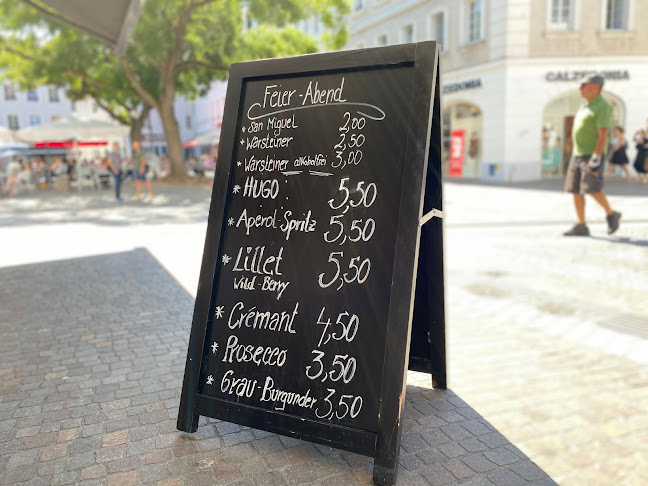 Feier-Abend
* San Miguel 2,00
* Warsteiner 2,50
* Warsteiner alkoholfrei 3,00
* HUGO : 5,50
* Aperol-Spritz 5,50
* Lillet 5,50
Wild-Berry
* Crémant 4,50
* Prosecco 3,50
* Grau-Burgunder 3,50
CALZEDONIA